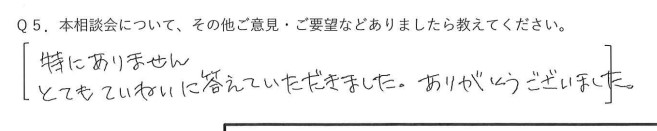 Q5．本相談会について、その他ご意見・ご要望などありましたら教えてください。
特にありません
とてもていねいに答えていただきました。ありがとうございました。